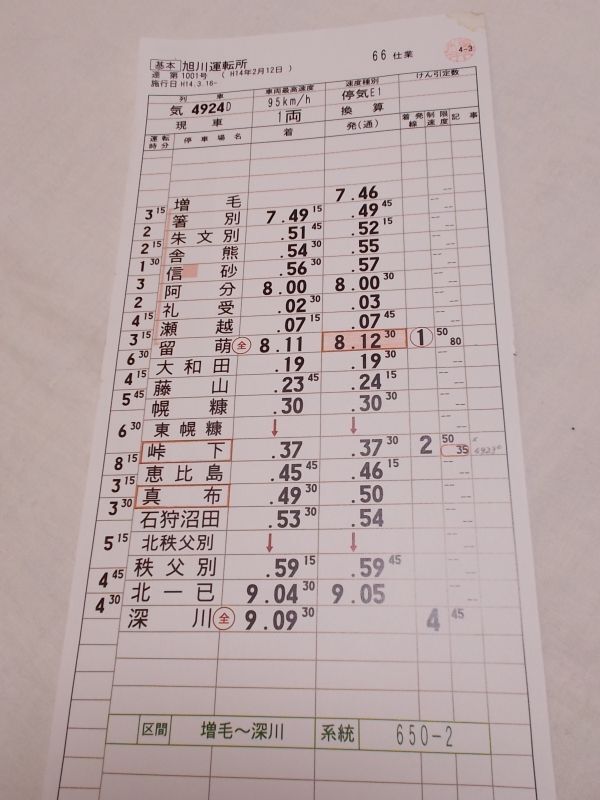 基本 旭川運転所 66仕業 4-3
達 第1001号 ( H14年2月12日 )
施行日 H14.3.16-
列車 車両最高速度 速度種別 けん引定数
気 4924D 95km/h 停気E1
現車 1両 換算
運転時分 停車場名 着 発(通) 着発線 制限速度 記事
増毛 7.46
3 15 箸別 7.49 15 .49 45
2 朱文別 .51 45 .52 15
2 15 舎熊 .54 30 .55
1 30 信砂 .56 30 .57
3 阿分 8.00 8.00 30
2 礼受 .02 30 .03
4 15 瀬越 .07 15 .07 45
3 15 留萌 全 8.11 8.12 30 1 50 80
6 30 大和田 .19 .19 30
4 15 藤山 .23 45 .24 15
5 45 幌糠 .30 .30 30
東幌糠 ↓ ↓
6 30 峠下 .37 .37 30 2 50 35
8 15 恵比島 .45 45 .46 15
3 15 真布 .49 30 .50
3 30 石狩沼田 .53 30 .54
北秩父別 ↓ ↓
5 15 秩父別 .59 15 .59 45
4 45 北一已 9.04 30 9.05
4 30 深川 全 9.09 30 4 45
区間 増毛～深川 系統 650-2